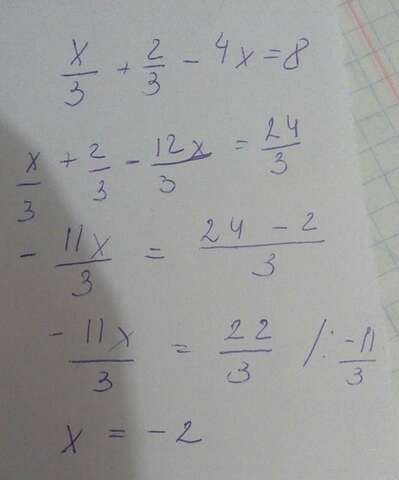 x/3 + 2/3 - 4x = 8
x/3 + 2/3 - 12x/3 = 24/3
- 11x/3 = 24 - 2/3
- 11x/3 = 22/3 /: -11/3
x = -2